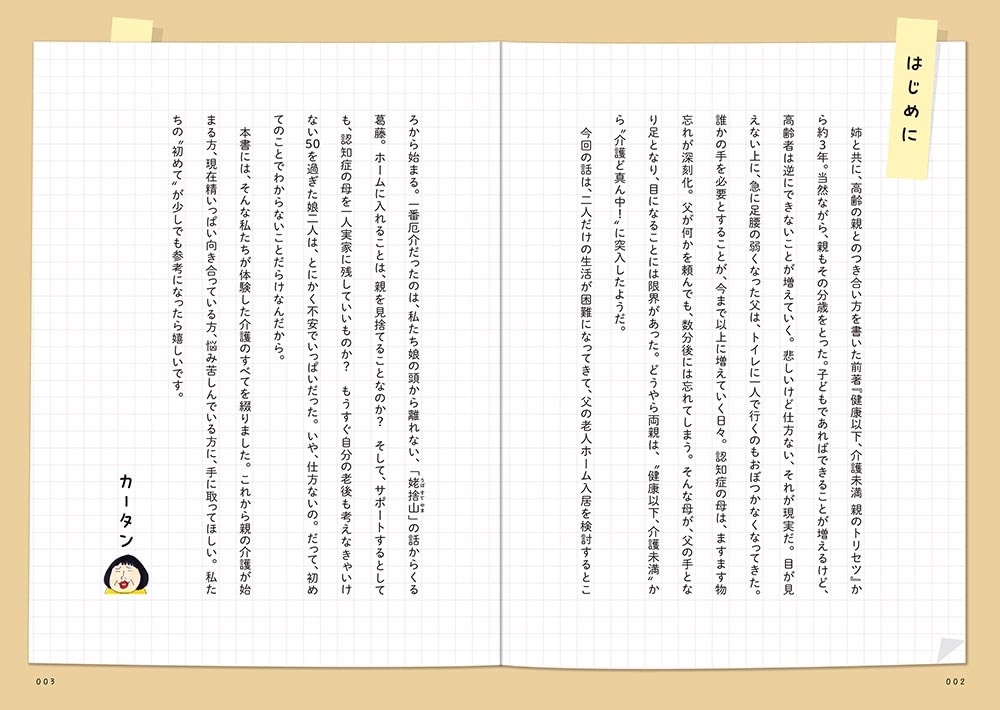 はじめに
　姉と共に、高齢の親とのつき合い方を書いた前著『健康以下、介護未満 親のトリセツ』か
ら約3年。当然ながら、親もその分歳をとった。子どもであればできることが増えるけど、
高齢者は逆にできないことが増えていく。悲しいけど仕方ない、それが現実だ。目が見
えない上に、急に足腰の弱くなった父は、トイレに一人で行くのもおぼつかなくなってきた。
誰かの手を必要とすることが、今まで以上に増えていく日々。認知症の母は、ますます物
忘れが深刻化。父が何かを頼んでも、数分後には忘れてしまう。そんな母が、父の手とな
り足となり、目になることには限界があった。どうやら両親は、〝健康以下、介護未満〟か
ら〝介護ど真ん中！〟に突入したようだ。
　今回の話は、二人だけの生活が困難になってきて、父の老人ホーム入居を検討するとこ
ろから始まる。一番厄介だったのは、私たち娘の頭から離れない、「姥捨山」の話からくる
うばすてやま
葛藤。ホームに入れることは、親を見捨てることなのか？　そして、サポートするとして
も、認知症の母を一人実家に残していいものか？　もうすぐ自分の老後も考えなきゃいけ
ない50を過ぎた娘二人は、とにかく不安でいっぱいだった。いや、仕方ないの。だって、初め
てのことでわからないことだらけなんだから。
　本書には、そんな私たちが体験した介護のすべてを綴りました。これから親の介護が始
まる方、現在精いっぱい向き合っている方、悩み苦しんでいる方に、手に取ってほしい。私た
ちの〝初めて〟が少しでも参考になったら嬉しいです。
カータン
003
002